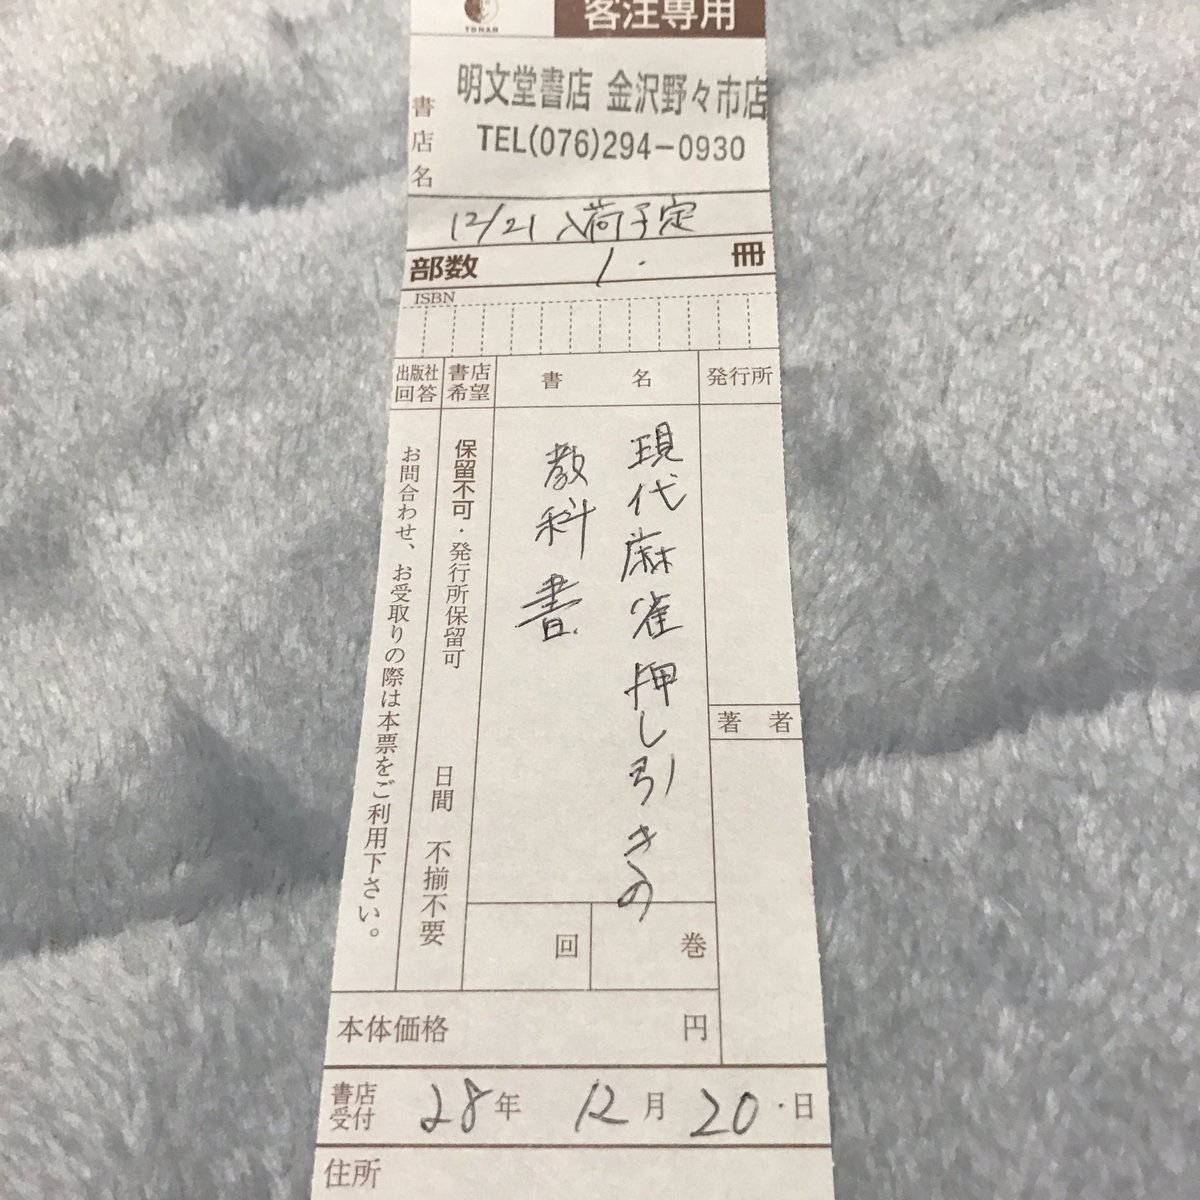 TONAN
客注専用
書店名
明文堂書店 金沢野々市店
TEL(076)294-0930
12/21 入荷予定
部数 1. 冊
ISBN
発行所
書名
書店希望
出版社回答
現代麻雀押し引きの
教科書
保留不可・発行所保留可
日間 不揃不要
お問合わせ、お受取りの際は本票をご利用下さい。
著者
回 巻
本体価格 円
書店受付 28年 12月 20・日
住所